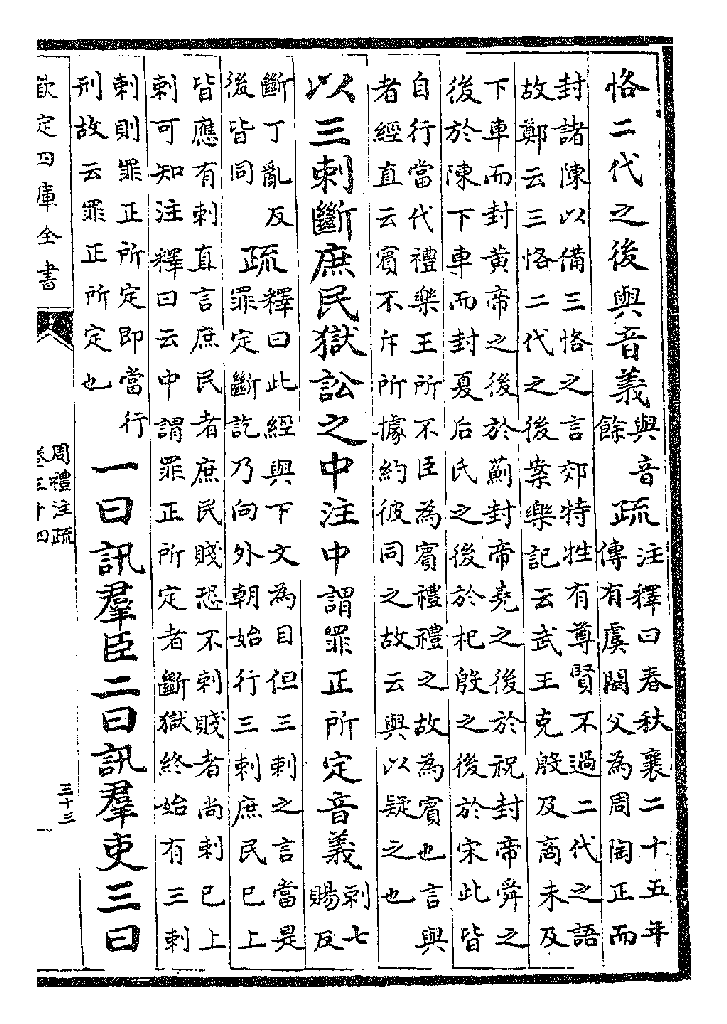 恪二代之後與音義與音餘疏注釋曰春秋襄二十五年傳有虞閼父為周陶正而
封諸陳以備三恪之言郊特牲有尊賢不過二代之語
故鄭云三恪二代之後案樂記云武王克殷及商未及
下車而封黄帝之後於薊封帝堯之後於祝封帝舜之
後於陳下車而封夏后氏之後於杞殷之後於宋此皆
自行當代禮樂王所不臣為賓禮禮之故為賓也言與
者經直云賓不斥所據約彼同之故云與以疑之也
以三刺斷庶民獄訟之中注中謂罪正所定音義刺七賜反
斷丁亂反後皆同疏釋曰此經與下文為目但三刺之言當是罪定斷訖乃向外朝始行三刺庶民已上
皆應有刺直言庶民者庶民賤恐不刺賤者尚刺已上
刺可知注釋曰云中謂罪正所定者斷獄終始有三刺
刺則罪正所定即當行
刑故云罪正所定也
一曰訊羣臣二曰訊羣吏三曰
欽定四庫全書
周禮注疏
卷三十四
三十三